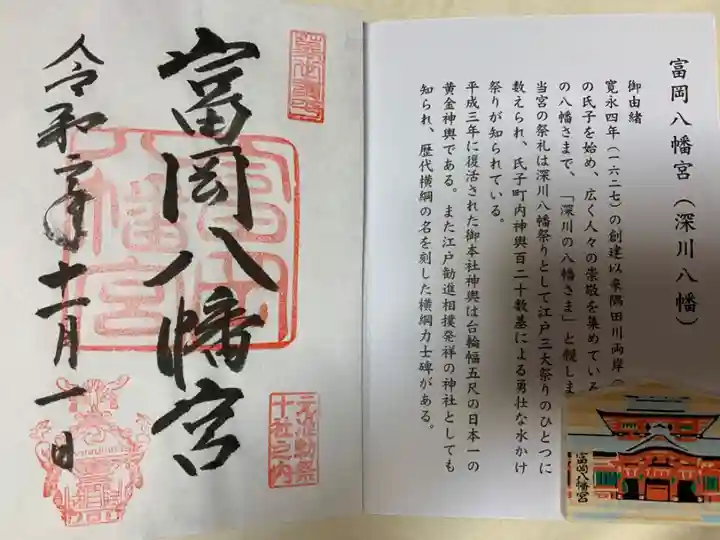 富岡八幡宮（深川八幡）
御由緒
寛永四年（一六二七）の創建以来隅田川両岸（
の氏子を始め、広く人々の崇敬を集めている
の八幡さまで、「深川の八幡さま」と親しま
当宮の祭礼は深川八幡祭りとして江戸三大祭りのひとつに
数えられ、氏子町内神輿百二十数基による勇壮な水かけ
祭りが知られている。
平成三年に復活された御本社神輿は台輪幅五尺の日本一の
黄金神輿である。また江戸勧進相撲発祥の神社としても
知られ、歴代横綱の名を刻した横綱力士碑がある。
富岡八幡宮
富岡八幡宮
富岡八幡宮
元准勅祭
十社之内
令和二年十一月一日